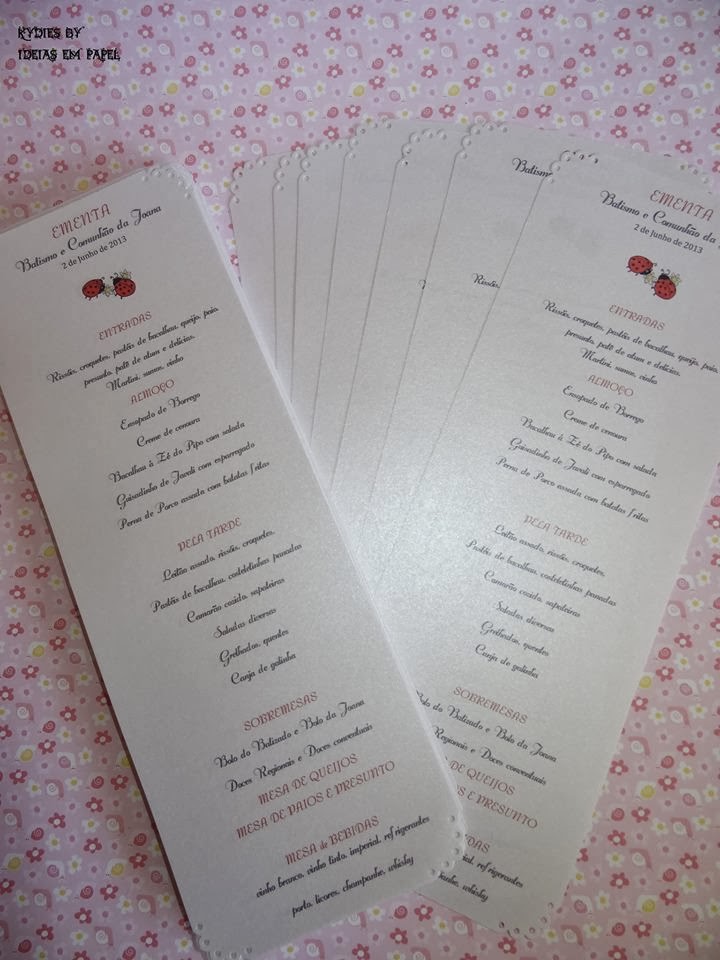 KYDIES BY
IDEIAS EM PAPEL
EMENTA
Batismo e Comunhão da Joana
2 de Junho de 2013
ENTRADAS
Rissóis, croquetes, pastéis de bacalhau, queijo, paio,
presunto, patê de atum e delícias.
Martini, sumos, vinho
ALMOÇO
Ensopado de Borrego
Creme de cenoura
Bacalhau à Zé do Pipo com salada
Guisadinho de Javali com esparregado
Perna de Porco assada com batatas fritas
PELA TARDE
Leitão assado, rissóis, croquetes,
Pastéis de bacalhau, costeletinhas panadas
Camarão cozido, sapateiras
Saladas diversas
Grelhados, quentes
Canja de galinha
SOBREMESAS
Bolo do Batizado e Bolo da Joana
Doces Regionais e Doces conventuais
MESA DE QUEIJOS
MESA DE PAIOS E PRESUNTO
MESA de BEBIDAS
vinho branco, vinho tinto, imperial, refrigerantes
porto, licores, champanhe, whisky
Batismo
Rissóis,
EMENTA
Batismo e Comunhão da
2 de Junho de 2013
ENTRADAS
Rissóis, croquetes, pastéis de bacalhau, queijo, paio,
presunto, patê de atum e delícias.
Martini, sumos, vinho
ALMOÇO
Ensopado de Borrego
Creme de cenoura
Bacalhau à Zé do Pipo com salada
Guisadinho de Javali com esparregado
Perna de Porco assada com batatas fritas
PELA TARDE
Leitão assado, rissóis, croquetes,
Pastéis de bacalhau, costeletinhas panadas
Camarão cozido, sapateiras
Saladas diversas
Grelhados, quentes
Canja de galinha
SOBREMESAS
Bolo do Batizado e Bolo da Joana
Regionais e Doces conventuais
DE QUEIJOS
DE PAIOS E PRESUNTO
BEBIDAS
imperial, refrigerantes
champanhe, whisky